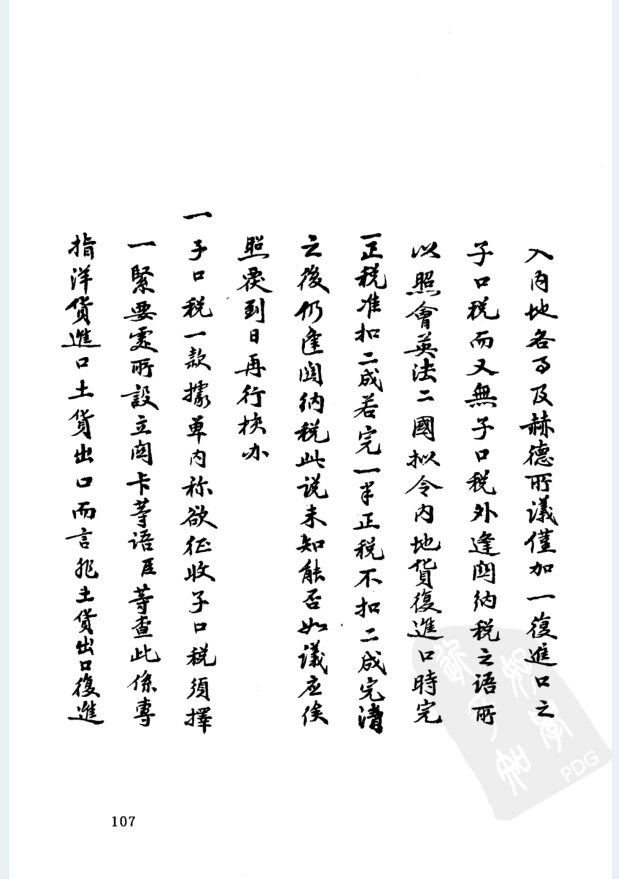 入內地各口及赫德所議僅加一復進口之
子口税而又無子口税外逢關納税之語所
以照會英法二國拟令內地貨復進口時完
一正税准扣二成若完一半正税不扣二成完清
之後仍逢關納税此説未知能否如議应俟
照覆到日再行核办
一子口税一款據单内称欲征收子口税須擇
一緊要處所設立關卡等语臣等查此係專
指洋貨進口土貨出口而言非土貨出口復進
107
PDG